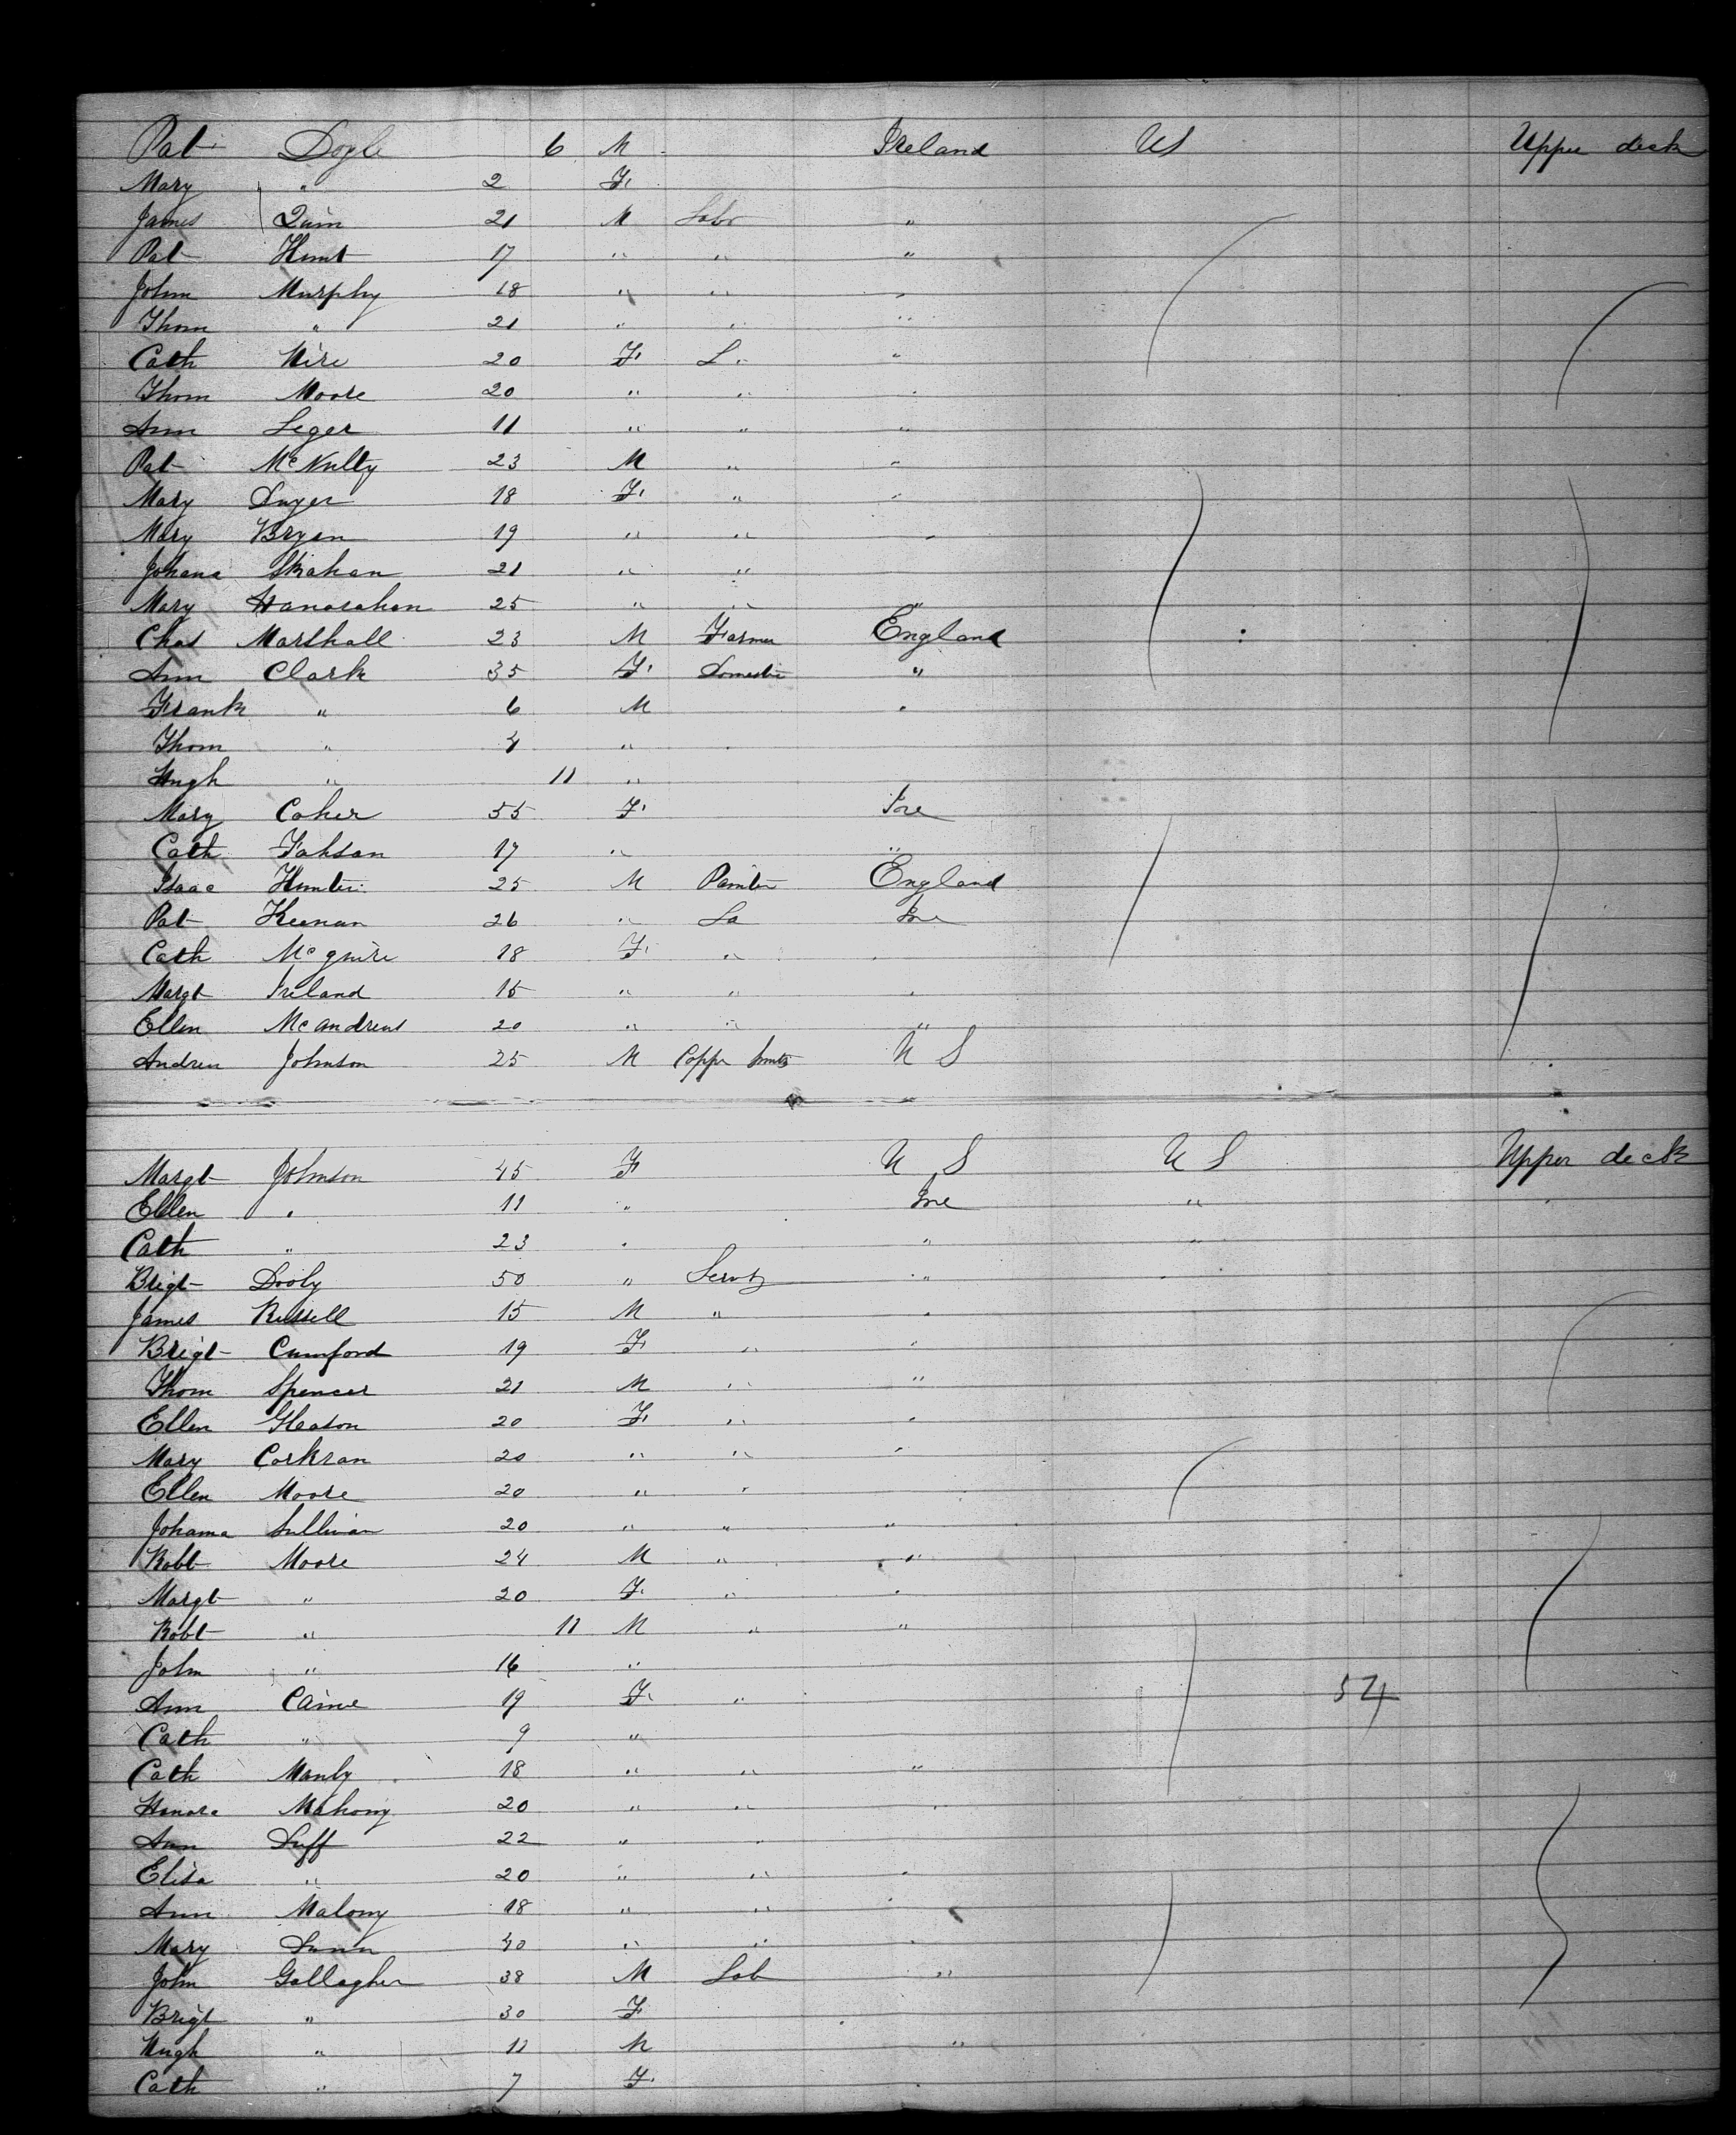 Pat Doyle 6 M Ireland US Upper deck
Mary " 2 F
James Quin 21 M Labr "
Pat Hunt 17 " " "
John Murphy 18 " " "
Thom " 21 " " "
Cath 20 F L "
Thom Moore 20 " " "
Ann Leger 11 " " "
Pat McNulty 23 M " "
Mary Dwyer 18 F " "
Mary Bryan 19 " " "
Johana Skahan 21 " "
Mary Hanarahan 25 " " "
Chas Marshall 23 M Farmer England
Ann Clark 35 F Domestic "
Frank " 6 M "
Thom " 4 "
Hugh " 11 "
Mary Caher 55 F Ire
Cath 17 " "
Isaac Hunter 25 M Painter England
Pat Keenan 26 " La Ire
Cath McGuire 18 F " "
Margt Ireland 15 " " "
Ellen McAndrews 20 " " "
Andrew Johnson 25 M Copper Smith U S
Margt Johnson 45 F U S U S Upper deck
Ellen " 11 " Ire "
Cath " 23 " " "
Brigt Dooly 50 " Servt "
James Russell 15 M " "
Brigt Cumford 19 F " "
Thom Spencer 21 M " "
Ellen Gleason 20 F " "
Mary Corkran 20 " " "
Ellen Moore 20 " "
Johanna Sullivan 20 " " "
Robt Moore 24 M " "
Margt " 20 F " "
Robt " 11 M " "
John " 16 "
Ann 19 F " 54
Cath " 9 "
Cath Manly 18 " " "
Honora Mahony 20 " " "
Ann Duff 22 " "
Elisa " 20 " " "
Ann Malony 18 " " "
Mary Dunn 40 " " "
John Gallagher 38 M Lab "
Brigt " 30 F
Hugh " 11 M "
Cath " 7 F